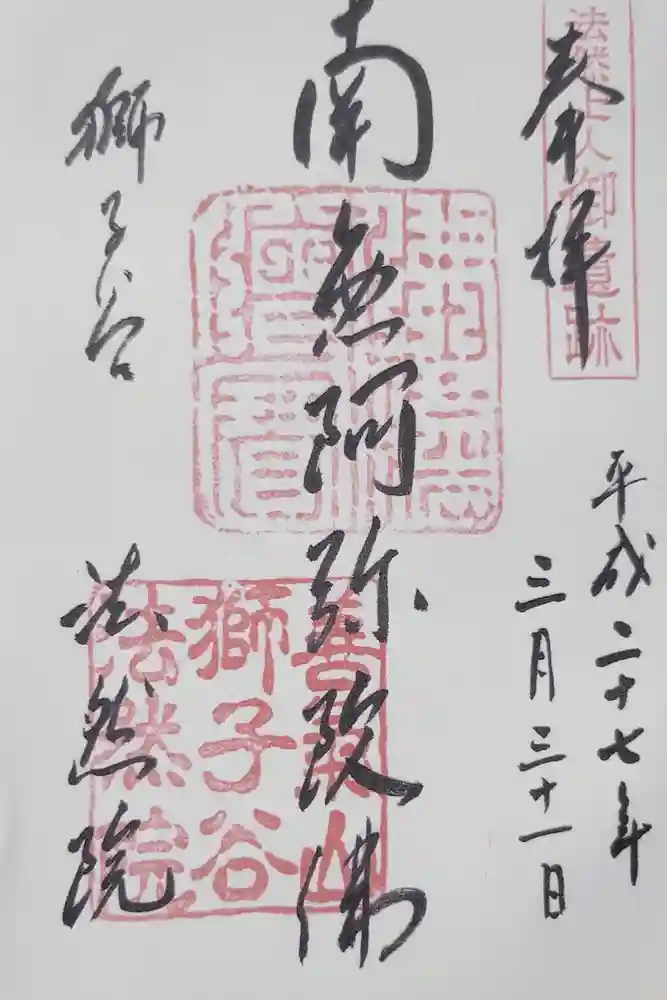 法然上人御遺跡
奉拝
平成二十七年
三月三十一日
南無阿弥陀佛
獅子谷
法然院
善氣山
獅子谷
法然院